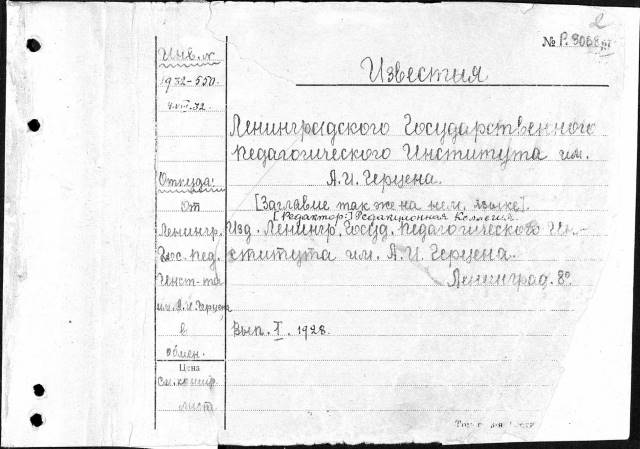 2
№ Р. 3068 III
Известия
Ленинградского Государственного
педагогического Института им.
А.И. Герцена.
[Заглавие так же на нем. языке].
[Редактор:] Редакционная Коллегия.
Изд. Ленингр. Госуд. Педагогического Ин-
ститута им. А.И. Герцена.
Ленинград. 8º
Вып. I. 1928.
Инв. к
1932-550.
4.VII.32.
Откуда:
От
Ленингр.
Гос. пед.
Инст-та
им. А.И. Герцена
в
обмен.
Цена
См. контр.
лист.